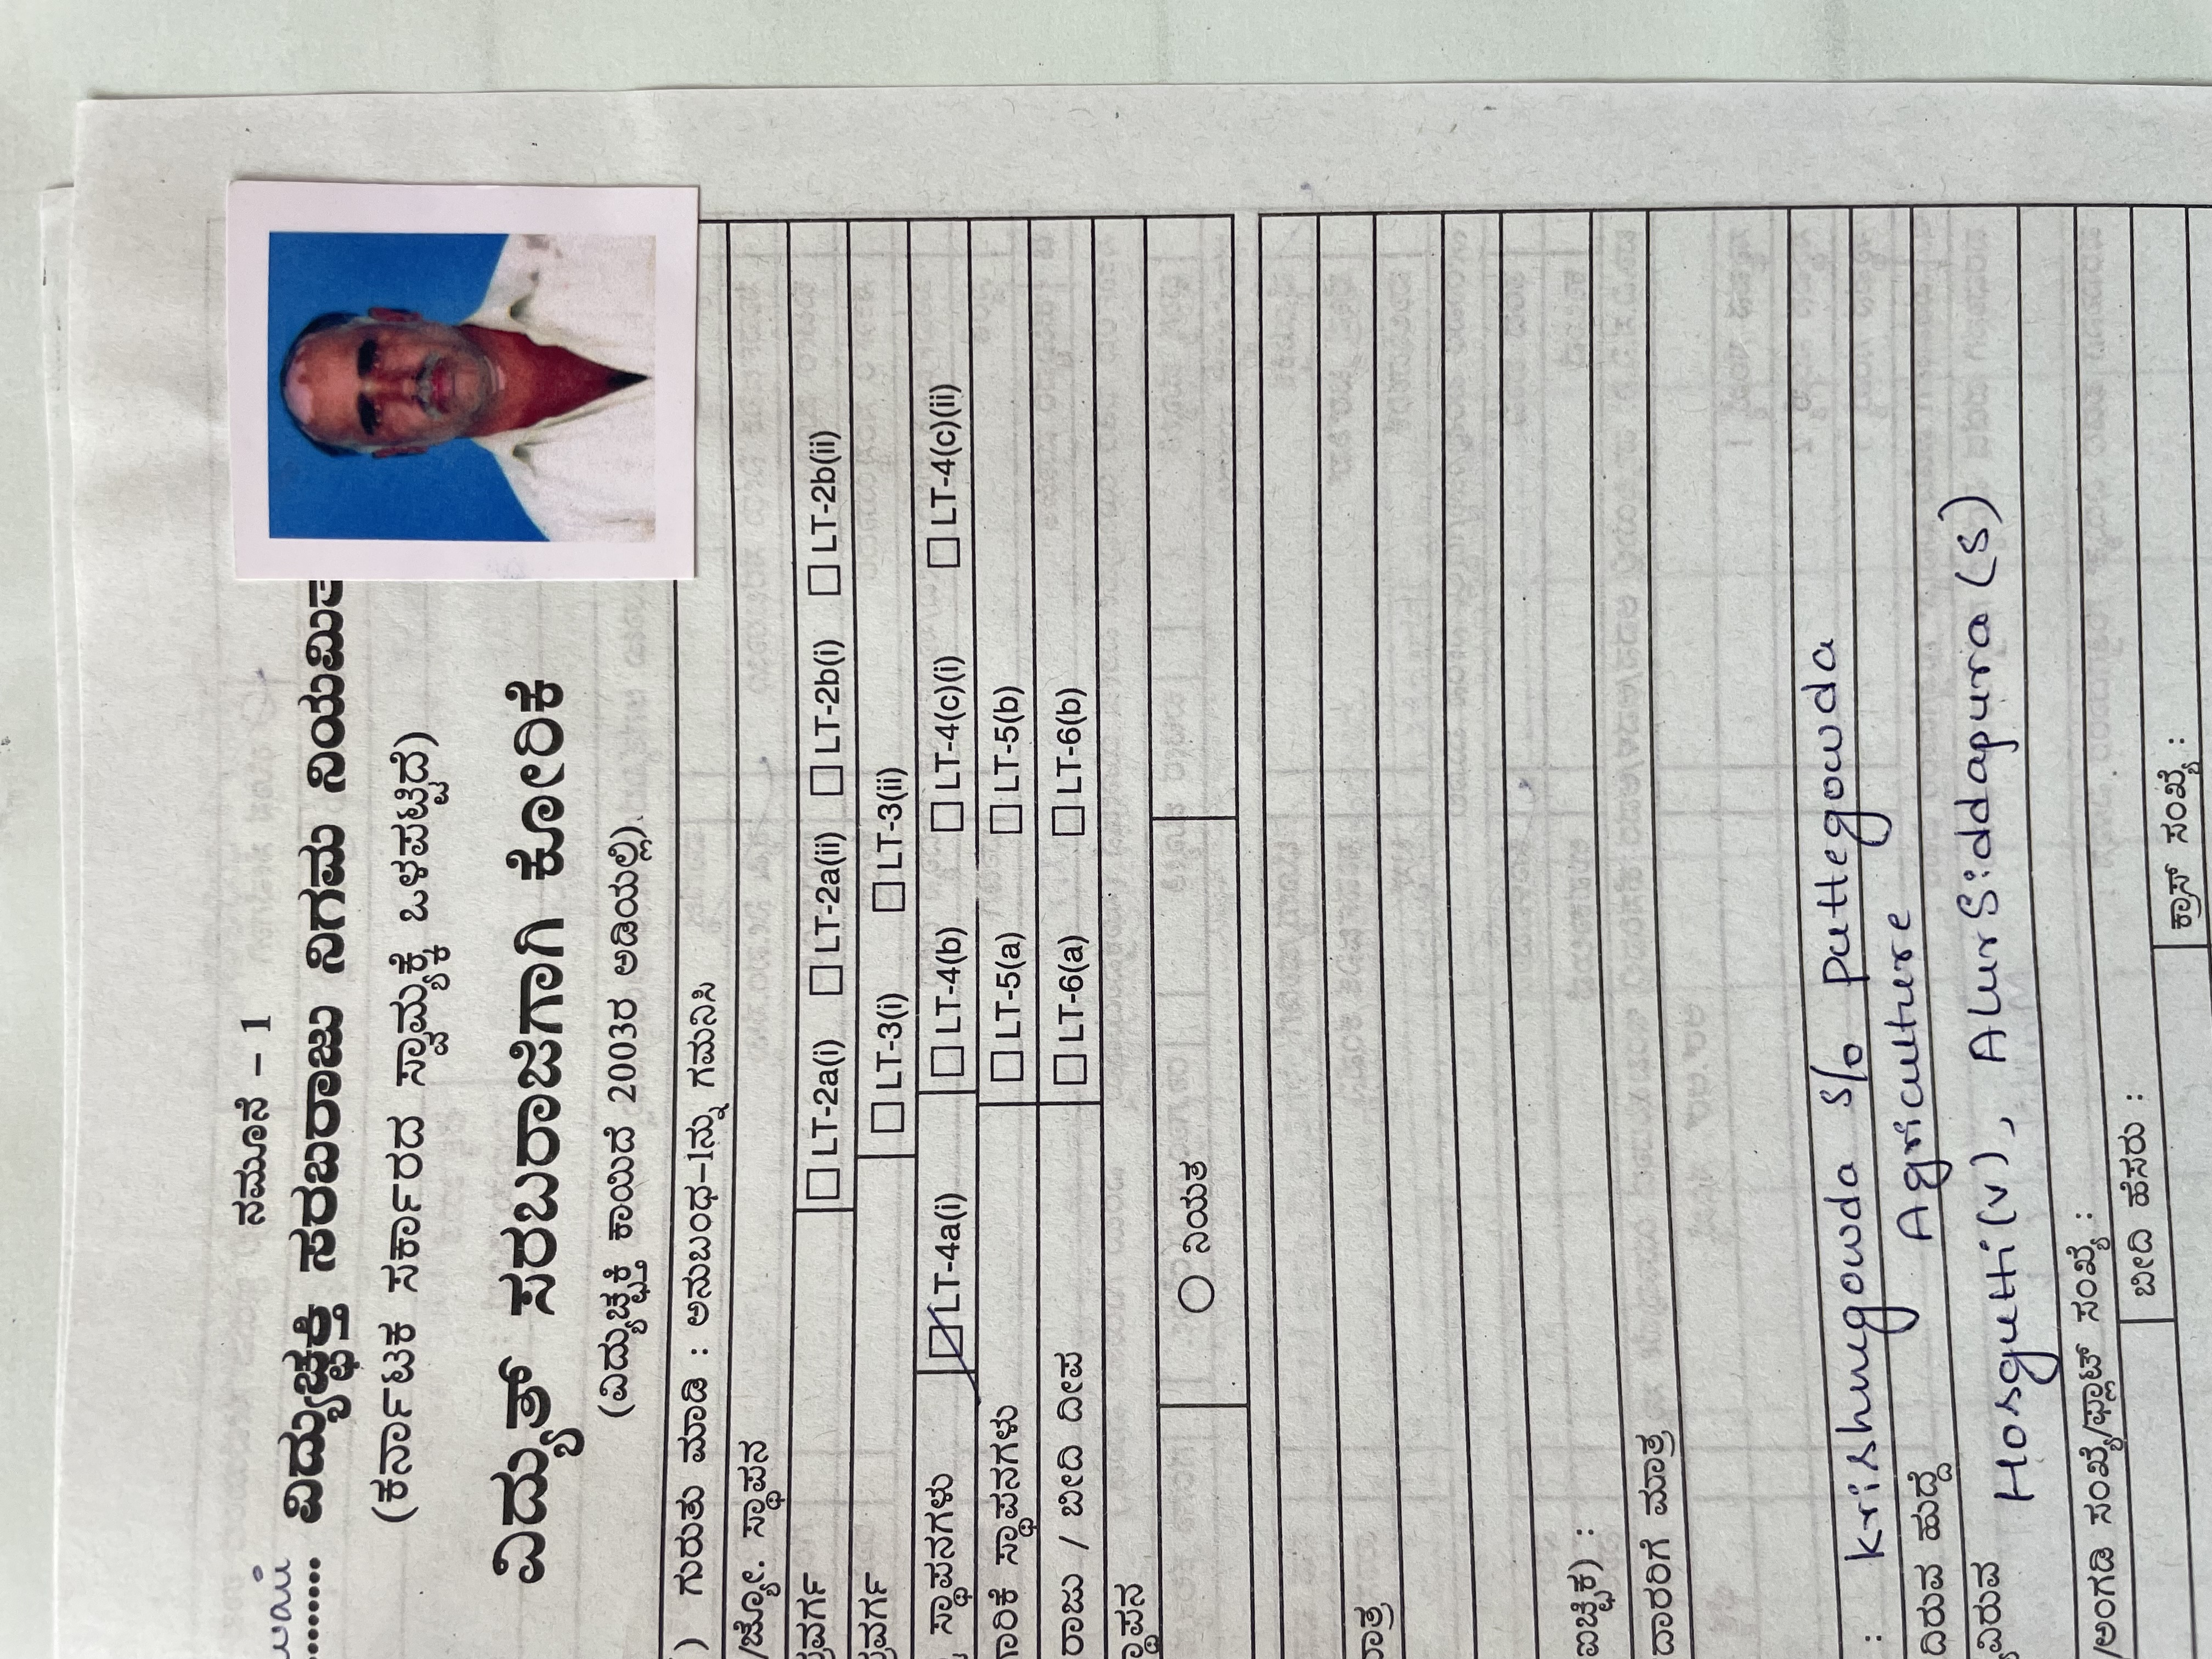 ನಮೂನೆ – 1
......... ವಿದ್ಯುಚ್ಛಕ್ತಿ ಸರಬರಾಜು ನಿಗಮ ನಿಯಮಿ
(ಕರ್ನಾಟಕ ಸರ್ಕಾರದ ಸ್ವಾಮ್ಯಕ್ಕೆ ಒಳಪಟ್ಟಿದೆ)
ವಿದ್ಯುತ್ ಸರಬರಾಜಿಗಾಗಿ ಕೋರಿಕೆ
(ವಿದ್ಯುಚ್ಛಕ್ತಿ ಕಾಯಿದೆ 2003ರ ಅಡಿಯಲ್ಲಿ)
) ಗುರುತು ಮಾಡಿ : ಅನುಬಂಧ–1ನ್ನು ಗಮನಿಸಿ
/ಜ್ಯೋ. ಸ್ಥಾಪನ
ವರ್ಗ ☐ LT-2a(i) ☐ LT-2a(ii) ☐ LT-2b(i) ☐ LT-2b(ii)
ವರ್ಗ ☐ LT-3(i) ☐ LT-3(ii)
ಸ್ಥಾಪನಗಳು ☑ LT-4a(i) ☐ LT-4(b) ☐ LT-4(c)(i) ☐ LT-4(c)(ii)
ಗಾರಿಕೆ ಸ್ಥಾಪನಗಳು ☐ LT-5(a) ☐ LT-5(b)
ರಾಜು / ಬೀದಿ ದೀಪ ☐ LT-6(a) ☐ LT-6(b)
ಸ್ಥಾಪನ
○ ನಿಯತ
ಮಾತ್ರ
ಐಚ್ಛಿಕ) :
ದಾರರಿಗೆ ಮಾತ್ರ
: Krishnugowda S/o puttegowda
ದಿರುವ ಹುದ್ದೆ Agriculture
ವಿರುವ Hosgutti(v), ALur Siddapura (S)
/ಅಂಗಡಿ ಸಂಖ್ಯೆ/ಫ್ಲಾಟ್ ಸಂಖ್ಯೆ :
ಬೀದಿ ಹೆಸರು : ಕ್ರಾಸ್ ಸಂಖ್ಯೆ :